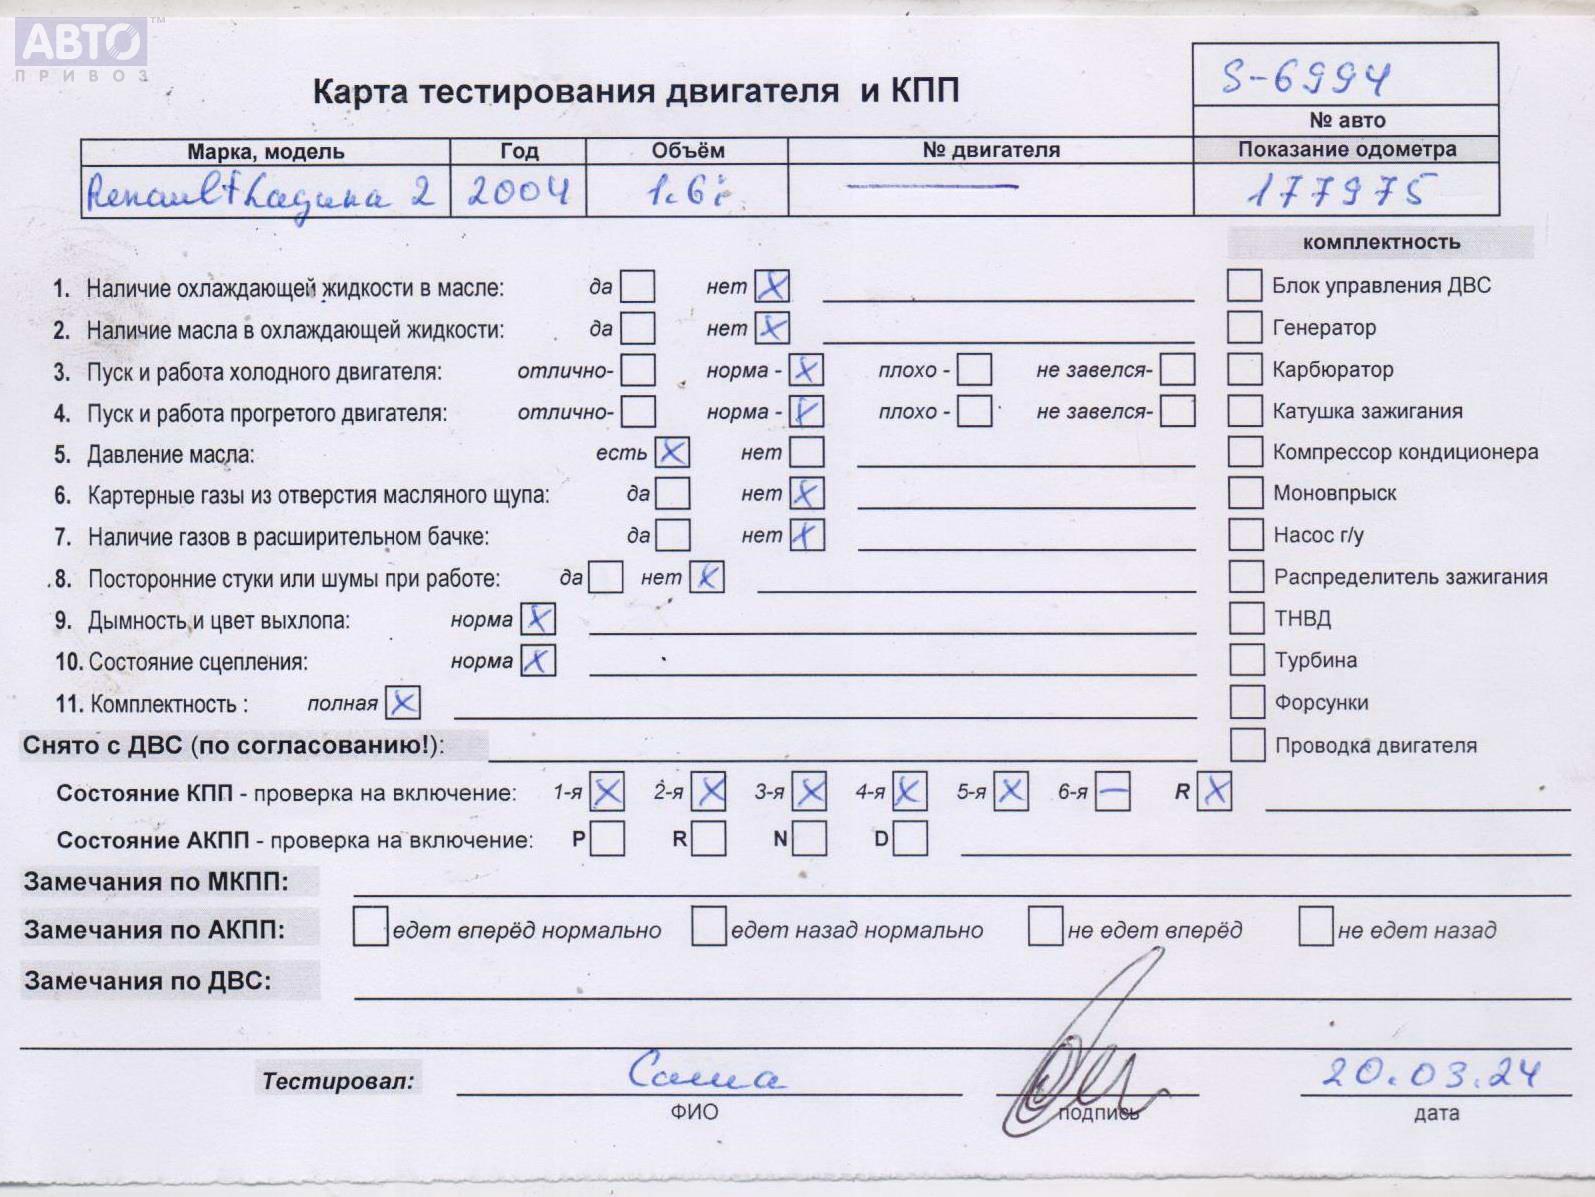 АВТО™
ПРИВОЗ
Карта тестирования двигателя и КПП
S-6994
№ авто
Марка, модель Год Объём № двигателя Показание одометра
Renault Laguna 2 2004 1.6i — 177975
комплектность
1. Наличие охлаждающей жидкости в масле: да нет X Блок управления ДВС
2. Наличие масла в охлаждающей жидкости: да нет X Генератор
3. Пуск и работа холодного двигателя: отлично- норма - X плохо - не завелся- Карбюратор
4. Пуск и работа прогретого двигателя: отлично- норма - X плохо - не завелся- Катушка зажигания
5. Давление масла: есть X нет Компрессор кондиционера
6. Картерные газы из отверстия масляного щупа: да нет X Моновпрыск
7. Наличие газов в расширительном бачке: да нет X Насос г/у
8. Посторонние стуки или шумы при работе: да нет X Распределитель зажигания
9. Дымность и цвет выхлопа: норма X ТНВД
10. Состояние сцепления: норма X Турбина
11. Комплектность : полная X Форсунки
Снято с ДВС (по согласованию!): Проводка двигателя
Состояние КПП - проверка на включение: 1-я X 2-я X 3-я X 4-я X 5-я X 6-я — R X
Состояние АКПП - проверка на включение: P R N D
Замечания по МКПП:
Замечания по АКПП: едет вперёд нормально едет назад нормально не едет вперёд не едет назад
Замечания по ДВС:
Тестировал: Саша 20.03.24
ФИО подпись дата